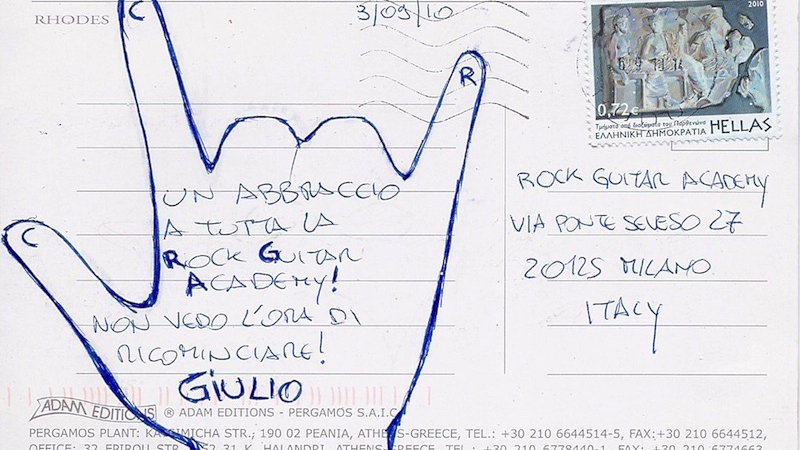 RHODES
C
3/09/10
2010
R
0,72€
Τμήματα από διαζώματα του Παρθενώνα
ΕΛΛΗΝΙΚΗ ΔΗΜΟΚΡΑΤΙΑ HELLAS
C
UN ABBRACCIO
A TUTTA LA
ROCK GUITAR
ACADEMY!
NON VEDO L'ORA DI
RICOMINCIARE!
GIULIO
ROCK GUITAR ACADEMY
VIA PONTE SEVESO 27
20125 MILANO
ITALY
ADAM EDITIONS ® ADAM EDITIONS - PERGAMOS S.A.I.C.
PERGAMOS PLANT: STR., 190 02 PEANIA, ATHENS-GREECE, TEL.: +30 210 6644514-5, FAX:+30 210 6644512,
OFFICE: 32 EPIROU STR., 152 31 K. HALANDRI, ATHENS-GREECE, TEL.: +30 210 6778440-1, FAX: +30 210 6774663